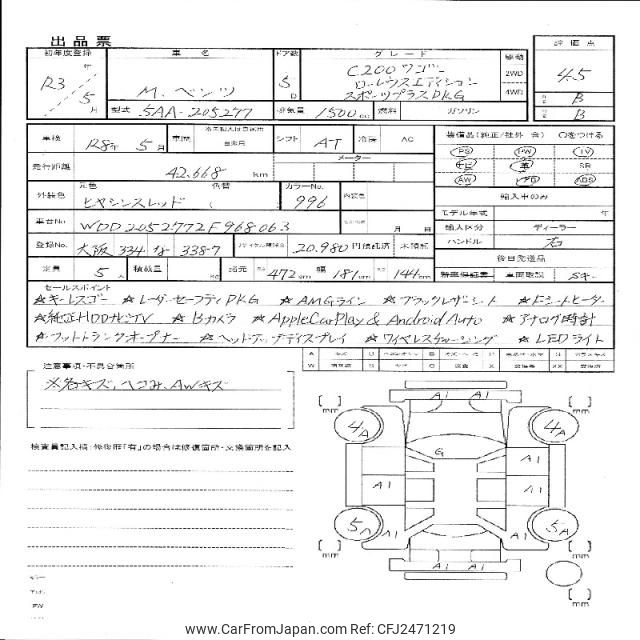 出品票
初年度登録 車名 ドア数 グレード 駆動 評価点
R3年 5月
M.ベンツ
5D
C200ワゴン
ローレウスエディション
スポーツプラスPKG
2WD
4WD
4.5
B
B
型式 5AA-205277 排気量 1500cc 燃料 ガソリン
車検 R8年 5月 車歴 自家用 シフト AT 冷房 AC
装備品(純正/社外 含) ○をつける
PS PW TV
SR
AW ABS
走行距離 42,668 km メーター
輸入車のみ
外装色 元色 ヒヤシンスレッド 色替 カラーNo. 996 内装色
モデル年式 年
車台No WDD2052772F968063 月 日
輸入区分 ディーラー
登録No. 大阪 334 な 338-7 リサイクル預託金 20,980 円預託済 未預託
ハンドル 右
後日発送品
定員 5人 積載量 KG 諸元 長さ 472cm 幅 181cm 高さ 144cm
新車保証書 車両取説 Sキー
セールスポイント
☆キーレスゴー ☆レーダーセーフティPKG ☆AMGライン ☆ブラックレザーシート ☆Fシートヒーター
☆純正HDDナビTV ☆Bカメラ ☆AppleCarPlay & Android Auto ☆アナログ時計
☆フットトランクオープナー ☆ヘッドアップディスプレイ ☆ワイヤレスチャージング ☆LEDライト
注意事項・不具合箇所
※各キズ、ヘコみ、AWキズ
検査員記入欄・修復歴「有」の場合は修復箇所・交換箇所を記入
[ ] mm [ ] mm
A1 A1
4A 4A
G
A1
A1 A1
5A 5A
A1 A1
A1 A1
[ ] mm [ ] mm
www.CarFromJapan.com | CFJ2471219